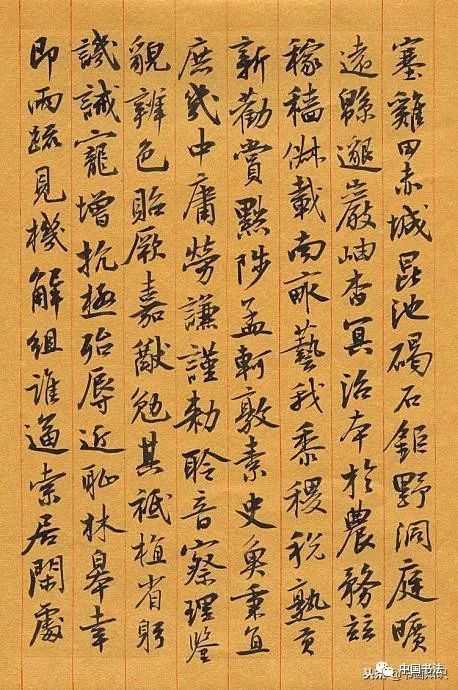 塞雞田赤城昆池碣石鉅野洞庭曠
遠緜邈巖岫杳冥治本於農務茲
稼穡俶載南畝藝我黍稷稅熟貢
新勸賞黜陟孟軻敦素史魚秉直
庶幾中庸勞謙謹勅聆音察理鑒
貌辨色貽厥嘉猷勉其祗植省躬
譏誡寵增抗極殆辱近耻林皋幸
即兩疏見機解組誰逼索居閑處
中国书法